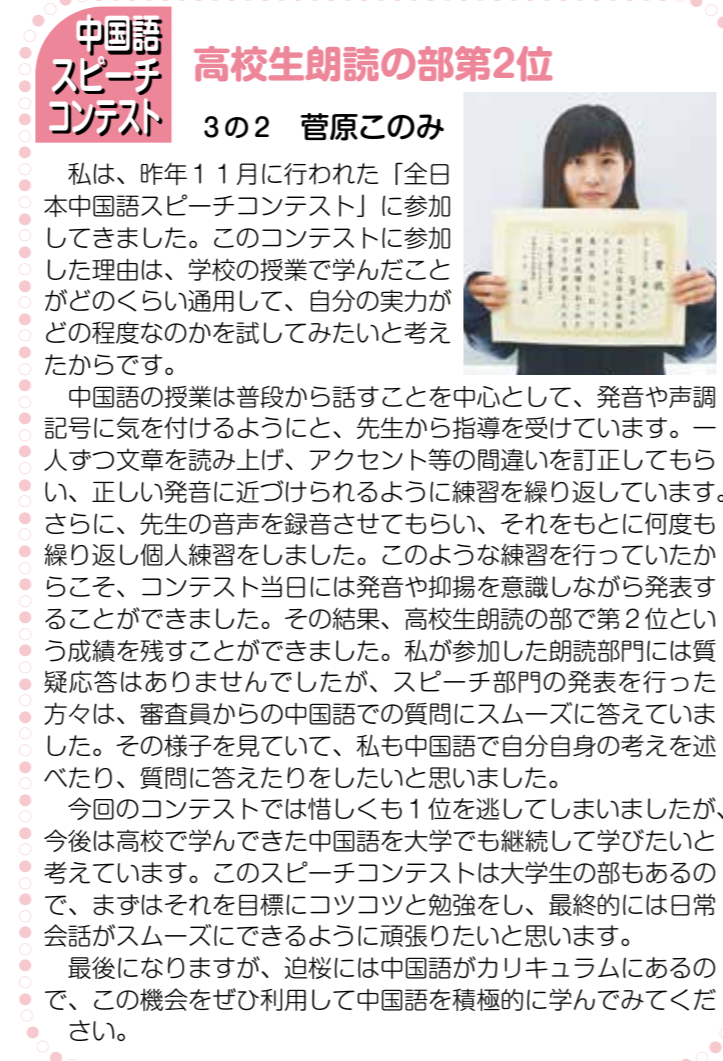 中国語
スピーチ
コンテスト
高校生朗読の部第2位
3の2　菅原このみ
私は、昨年１１月に行われた「全日
本中国語スピーチコンテスト」に参加
してきました。このコンテストに参加
した理由は、学校の授業で学んだこと
がどのくらい通用して、自分の実力が
どの程度なのかを試してみたいと考え
たからです。
賞状
中国語の授業は普段から話すことを中心として、発音や声調
記号に気を付けるようにと、先生から指導を受けています。一
人ずつ文章を読み上げ、アクセント等の間違いを訂正してもら
い、正しい発音に近づけられるように練習を繰り返しています。
さらに、先生の音声を録音させてもらい、それをもとに何度も
繰り返し個人練習をしました。このような練習を行っていたか
らこそ、コンテスト当日には発音や抑揚を意識しながら発表す
ることができました。その結果、高校生朗読の部で第２位とい
う成績を残すことができました。私が参加した朗読部門には質
疑応答はありませんでしたが、スピーチ部門の発表を行った
方々は、審査員からの中国語での質問にスムーズに答えていま
した。その様子を見ていて、私も中国語で自分自身の考えを述
べたり、質問に答えたりをしたいと思いました。
今回のコンテストでは惜しくも１位を逃してしまいましたが、
今後は高校で学んできた中国語を大学でも継続して学びたいと
考えています。このスピーチコンテストは大学生の部もあるの
で、まずはそれを目標にコツコツと勉強をし、最終的には日常
会話がスムーズにできるように頑張りたいと思います。
最後になりますが、迫桜には中国語がカリキュラムにあるの
で、この機会をぜひ利用して中国語を積極的に学んでみてくだ
さい。